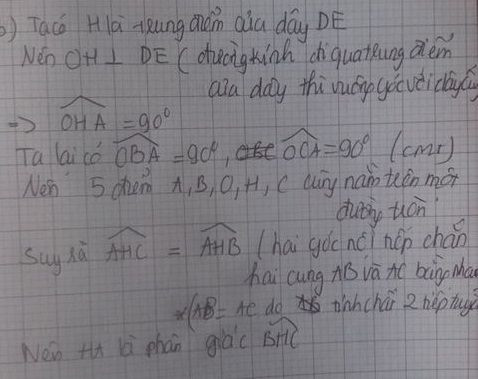 b) Ta có H là trung điểm của dây DE
Nên OH ⊥ DE ( đường kính đi qua trung điểm
của dây thì vuông góc với dây ấy
=> OHA = 90°
Ta lại có OBA = 90°, OCA = 90° (cmt)
Nên 5 điểm A, B, O, H, C cùng nằm trên một
đường tròn
Suy ra AHC = AHB ( hai góc nội tiếp chắn
hai cung AB và AC bằng nhau
(AB = AC do tính chất 2 tiếp tuyế
Nên HA là phân giác BHC